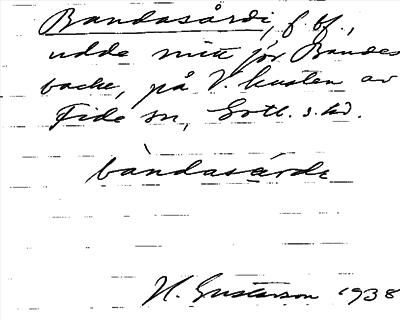 Bandasårdi, f. bf.,
udde mitt för Bandes
backe, på V. kusten av
Fide sn, Gotl. s. hd.
bàndasárdi
H. Gustavson 1938